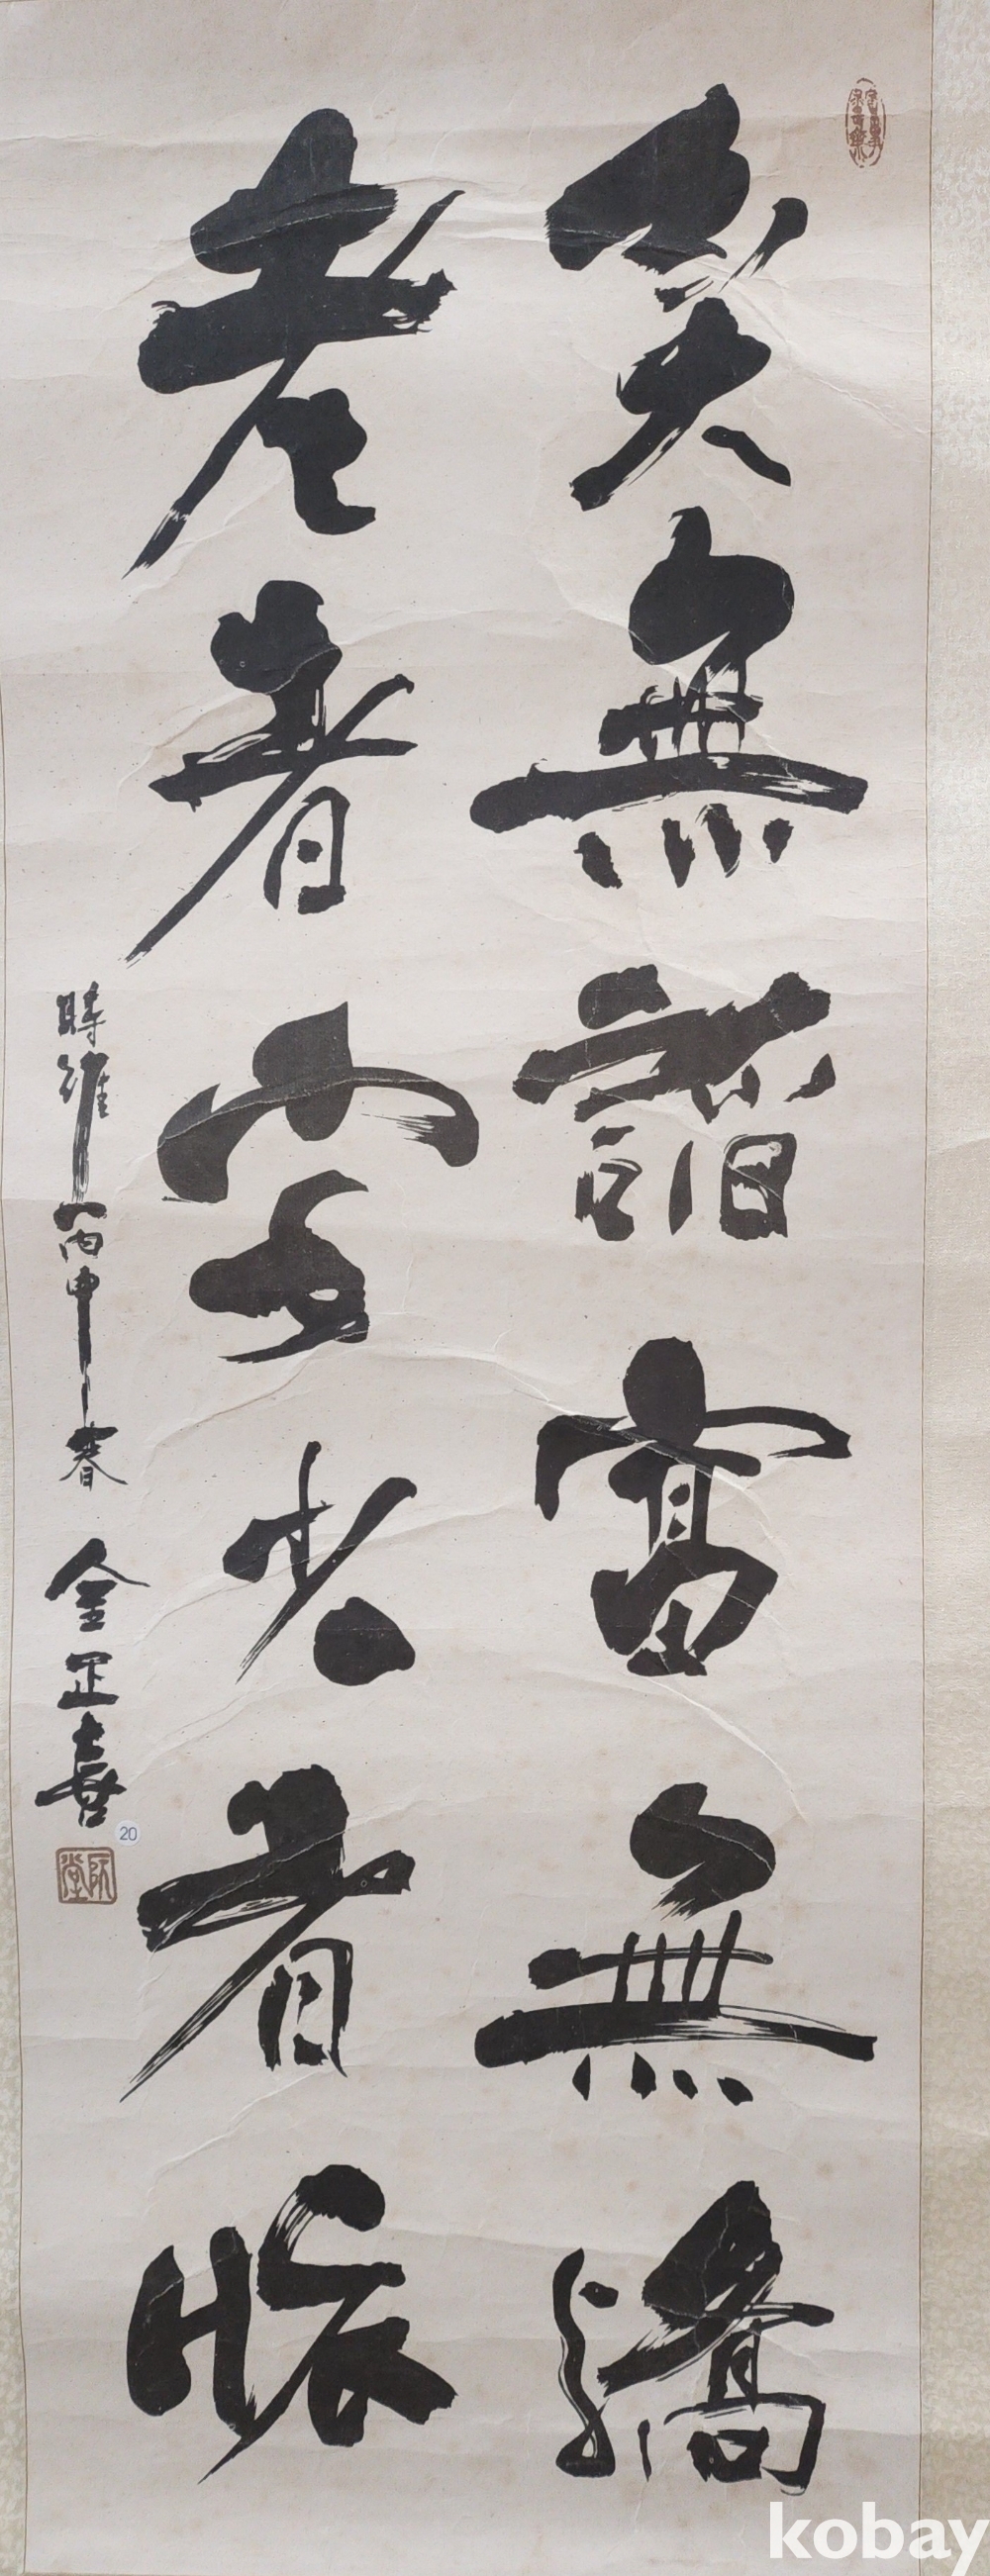 貧無諂富無驕
老者安少者懷
時維丙申春 金正喜
阮堂
20
kobay